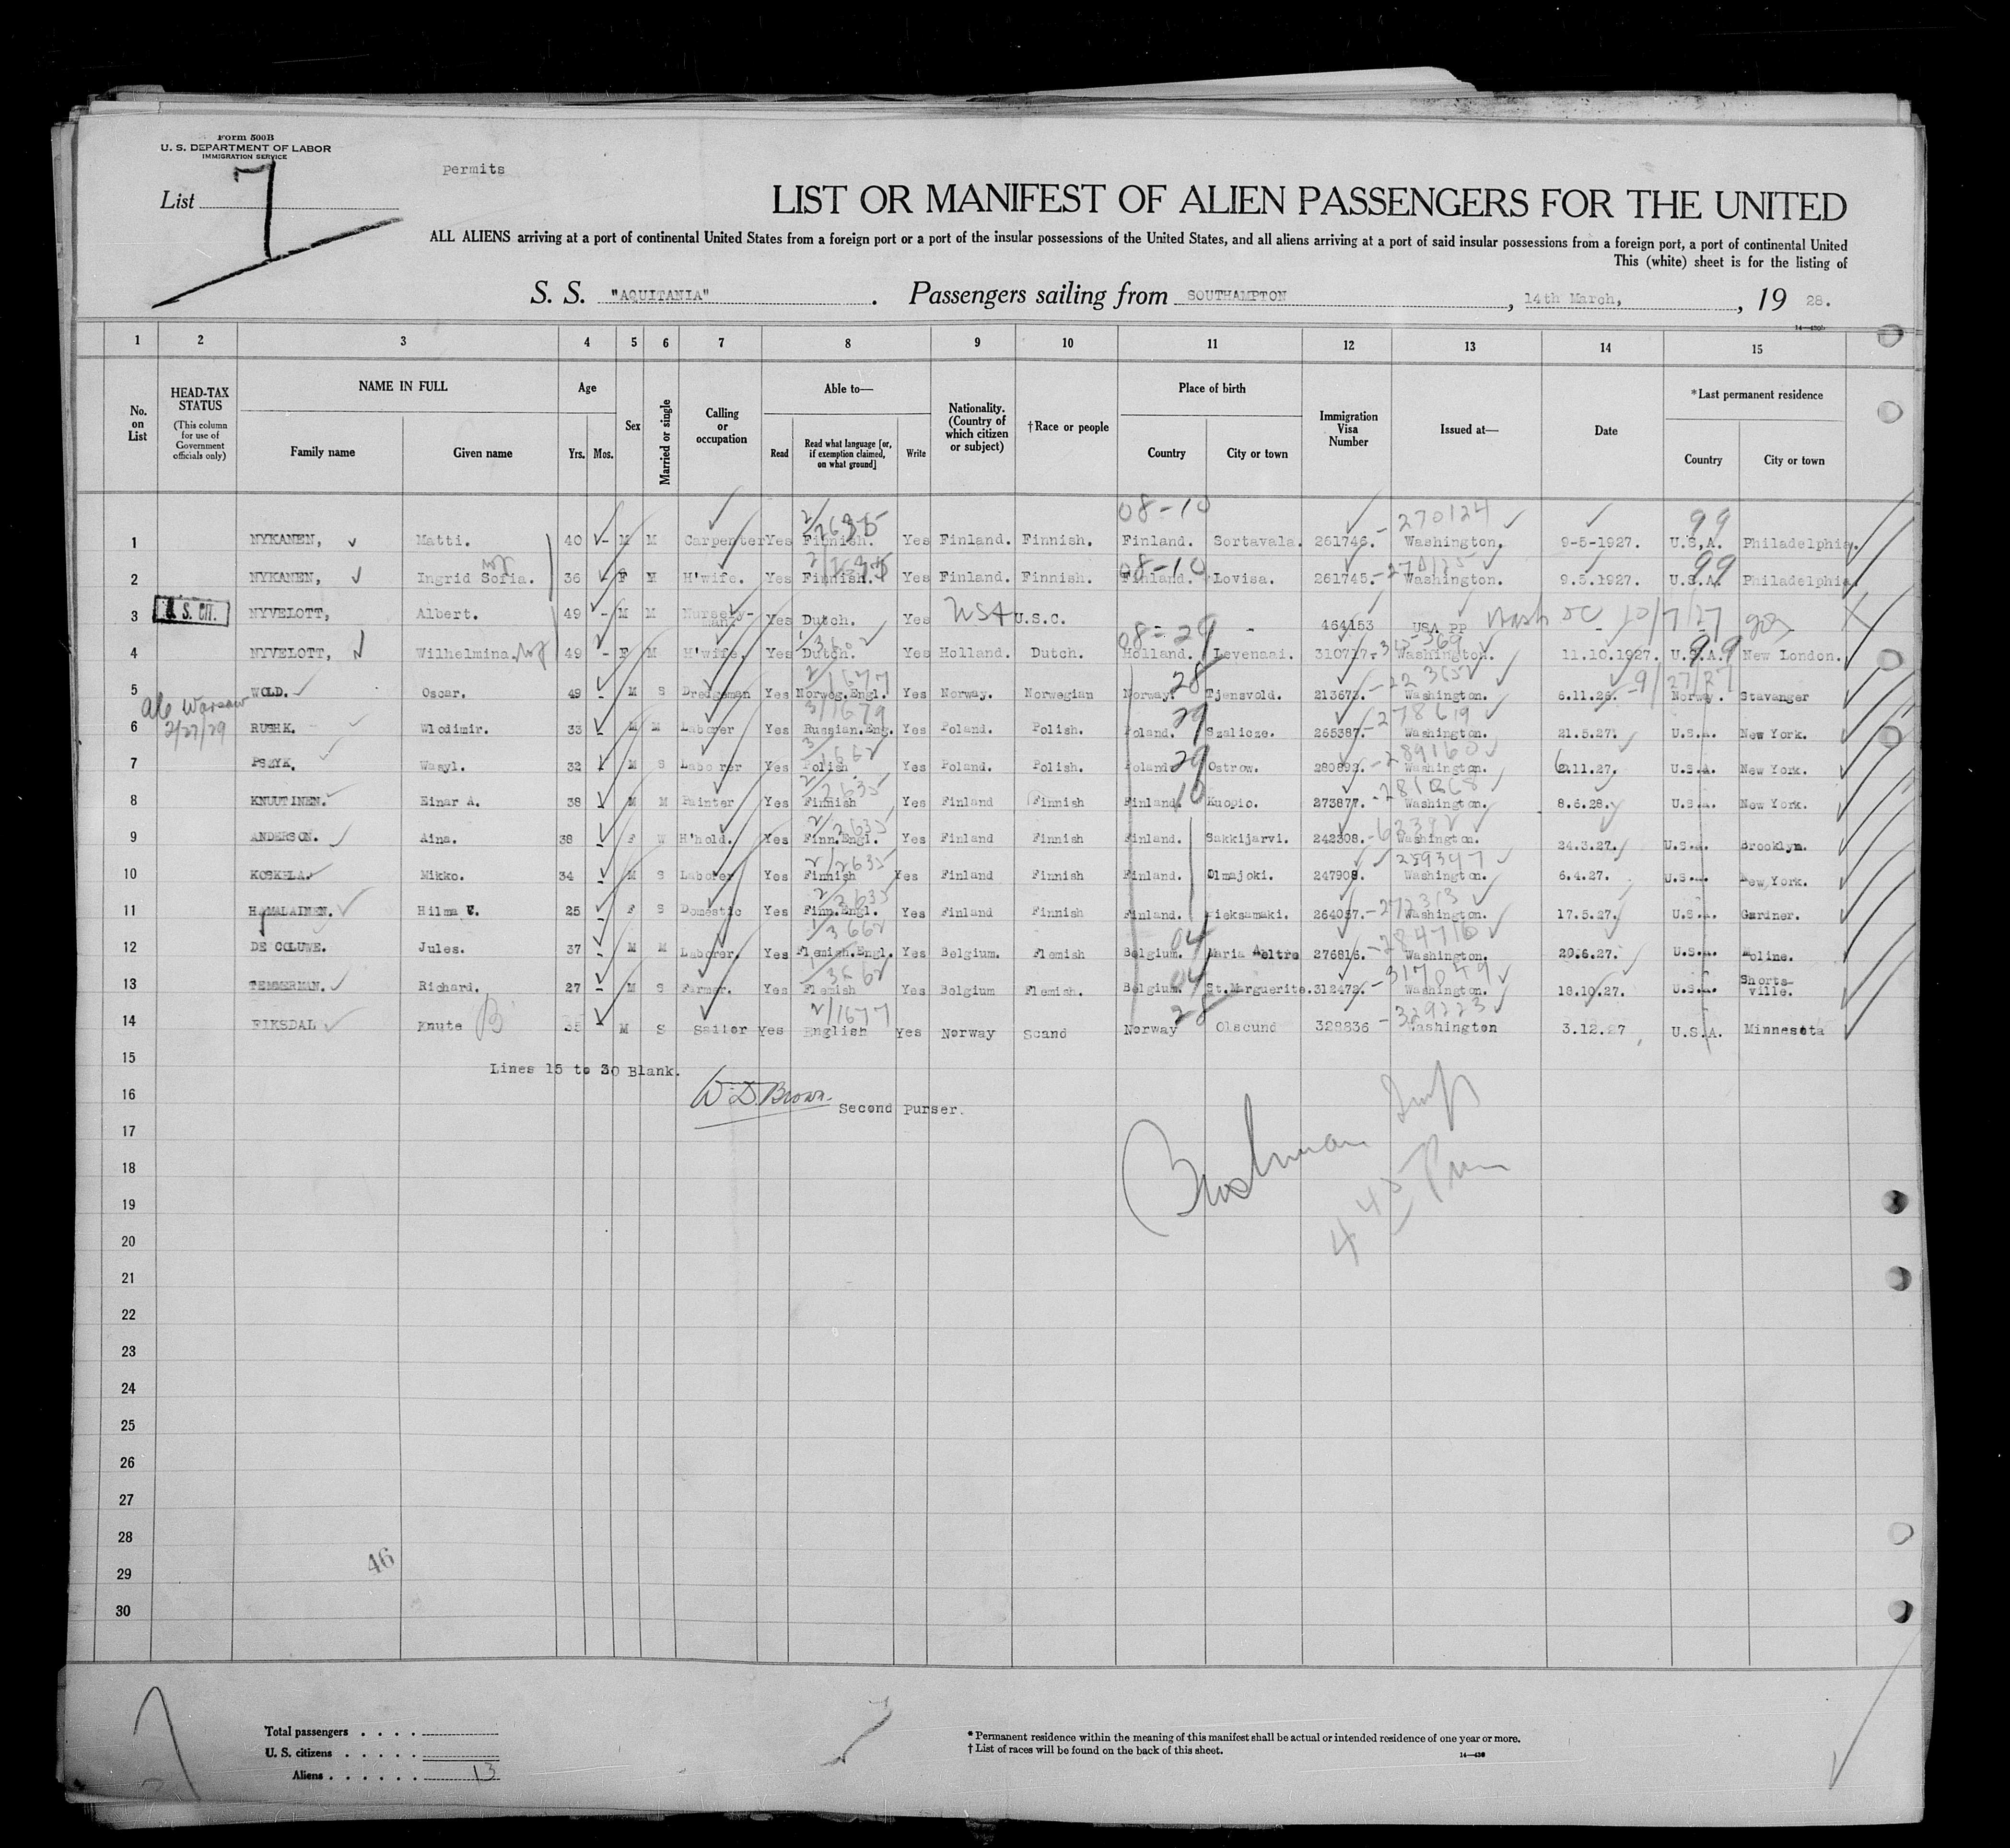 Form 500B
U. S. DEPARTMENT OF LABOR
IMMIGRATION SERVICE
Permits
List 7
LIST OR MANIFEST OF ALIEN PASSENGERS FOR THE UNITED
ALL ALIENS arriving at a port of continental United States from a foreign port or a port of the insular possessions of the United States, and all aliens arriving at a port of said insular possessions from a foreign port, a port of continental United
This (white) sheet is for the listing of
S. S. "AQUITANIA". Passengers sailing from SOUTHAMPTON, 14th March, , 19 28.
14—430b
1 2 3 4 5 6 7 8 9 10 11 12 13 14 15
No. on List
HEAD-TAX STATUS (This column for use of Government officials only)
NAME IN FULL Family name Given name
Age Yrs. Mos.
Sex
Married or single
Calling or occupation
Able to— Read Read what language [or, if exemption claimed, on what ground] Write
Nationality. (Country of which citizen or subject)
†Race or people
Place of birth Country City or town
Immigration Visa Number
Issued at—
Date
*Last permanent residence Country City or town
08-10 270124 99
1 NYKANEN, Matti. 40 - M M Carpenter Yes Finnish. Yes Finland. Finnish. Finland. Sortavala. 261746. Washington. 9-5-1927. U.S.A. Philadelphia.
08-10 99
2 NYKANEN, Ingrid Sofia. 36 F M H'wife. Yes Finnish. Yes Finland. Finnish. Finland. Lovisa. 261745. Washington. 9.5.1927. U.S.A. Philadelphia
3 U. S. CIT. NYVELOTT, Albert. 49 - M M Nursery-man. Yes Dutch. Yes USA U.S.C. - 464153 USA PP Wash DC 10/7/27
08-29 99
4 NYVELOTT, Wilhelmina. 49 - F M H'wife. Yes Dutch. Yes Holland. Dutch. Holland. Levenaai. 310717. Washington. 11.10.1927. U.S.A. New London.
28 2/1677
5 WOLD. Oscar. 49 - M S Dredgeman Yes Norweg.Engl. Yes Norway. Norwegian Norway. Tjensvold. 213673. Washington. 6.11.26. 9/27/27 Norway. Stavanger
Warsaw
2/27/29
29 3/1679 278619
6 RUSHK. Wlodimir. 33 M M Laborer Yes Russian.Eng. Yes Poland. Polish. Poland. Szalicze. 265387. Washington. 21.5.27. U.S.A. New York.
29 289160
7 PSZYK. Wasyl. 32 M S Laborer Yes Polish Yes Poland. Polish. Poland. Ostrow. 280893. Washington. 6.11.27. U.S.A. New York.
10 2/2635
8 KNUUTINEN. Einar A. 38 M M Painter Yes Finnish Yes Finland Finnish Finland. Kuopio. 273877. Washington. 8.6.28. U.S.A. New York.
2/2635 62392
9 ANDERSON. Aina. 38 F W H'hold. Yes Finn.Engl. Yes Finland Finnish Finland. Sakkijarvi. 242308. Washington. 24.3.27. U.S.A. Brooklyn.
2/2635 289347
10 KOSKELA. Mikko. 34 M S Laborer Yes Finnish Yes Finland Finnish Finland. Olmajoki. 247908. Washington. 6.4.27. U.S.A. New York.
2/2635 272313
11 HAMALAINEN. Hilma E. 25 F S Domestic Yes Finn.Engl. Yes Finland Finnish Finland. Pieksamaki. 264057. Washington. 17.5.27. U.S.A. Gardner.
1/3662 04 284716
12 DE COLUWE. Jules. 37 M M Laborer. Yes Flemish.Engl. Yes Belgium. Flemish Belgium. Maria Aeltre 276816. Washington. 20.6.27. U.S.A. Moline.
1/3662 04 317049
13 TEMMERMAN. Richard. 27 M S Farmer. Yes Flemish Yes Belgium Flemish. Belgium. St.Marguerite. 312472. Washington. 18.10.27. U.S.A. Shorts-ville.
2/1677 28 329223
14 FIKSDAL Knute 35 M S Sailor Yes English Yes Norway Scand Norway Olscund 328836 Washington 3.12.27 U.S.A. Minnesota
15
Lines 15 to 30 Blank.
16
W D. Brown. Second Purser.
17
18
19
445 Pm
20
21
22
23
24
25
26
27
28
29
46
30
Total passengers . . . .
U. S. citizens . . . . .
Aliens . . . . . . 13
* Permanent residence within the meaning of this manifest shall be actual or intended residence of one year or more.
† List of races will be found on the back of this sheet.
14—430